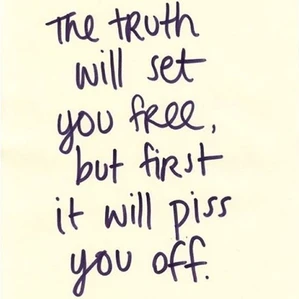 The tRuth
will set
you fRee,
but first
it will piss
you off.